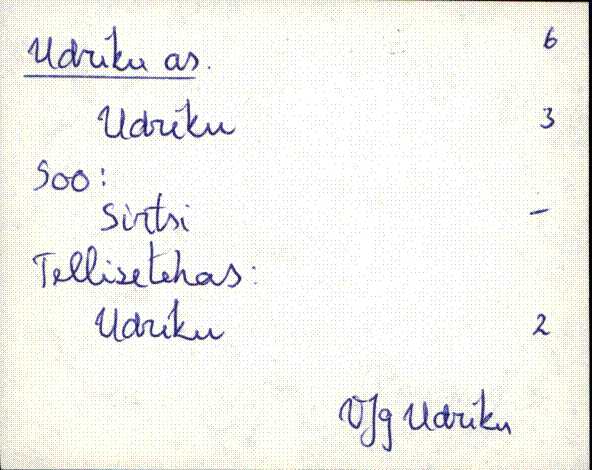 Udriku as. 6
Udriku 3
Soo:
Sirtsi –
Tellisetehas:
Udriku 2
VJg Udriku